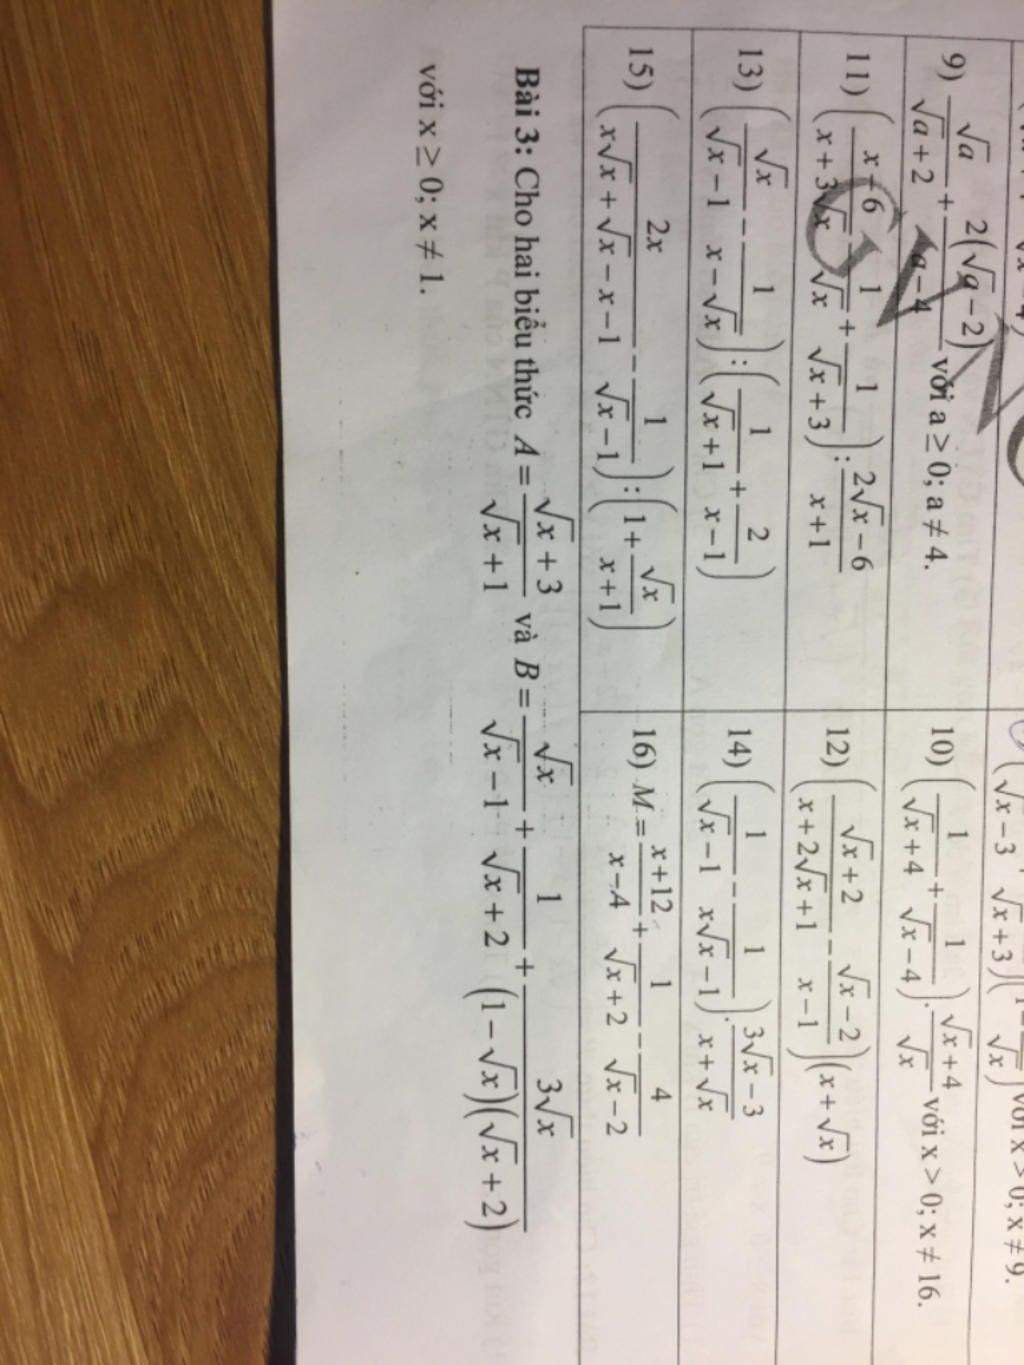 9) \frac{\sqrt{a}}{\sqrt{a}+2} + \frac{2(\sqrt{a}-2)}{a-4} với a ≥ 0; a ≠ 4.
10) \left(\frac{1}{\sqrt{x}+4} + \frac{1}{\sqrt{x}-4}\right) \cdot \frac{\sqrt{x}+4}{\sqrt{x}} với x > 0; x ≠ 16.
11) \left(\frac{x+6}{x+3\sqrt{x}} - \frac{1}{\sqrt{x}} + \frac{1}{\sqrt{x}+3}\right) : \frac{2\sqrt{x}-6}{x+1}
12) \left(\frac{\sqrt{x}+2}{x+2\sqrt{x}+1} - \frac{\sqrt{x}-2}{x-1}\right)(x+\sqrt{x})
13) \left(\frac{\sqrt{x}}{\sqrt{x}-1} - \frac{1}{x-\sqrt{x}}\right) : \left(\frac{1}{\sqrt{x}+1} + \frac{2}{x-1}\right)
14) \left(\frac{1}{\sqrt{x}-1} - \frac{1}{x\sqrt{x}-1}\right) \cdot \frac{3\sqrt{x}-3}{x+\sqrt{x}}
15) \left(\frac{2x}{x\sqrt{x}+\sqrt{x}-x-1} - \frac{1}{\sqrt{x}-1}\right) : \left(1+\frac{\sqrt{x}}{x+1}\right)
16) M = \frac{x+12}{x-4} + \frac{1}{\sqrt{x}+2} - \frac{4}{\sqrt{x}-2}
Bài 3: Cho hai biểu thức A = \frac{\sqrt{x}+3}{\sqrt{x}+1} và B = \frac{\sqrt{x}}{\sqrt{x}-1} + \frac{1}{\sqrt{x}+2} + \frac{3\sqrt{x}}{(1-\sqrt{x})(\sqrt{x}+2)}
với x ≥ 0; x ≠ 1.